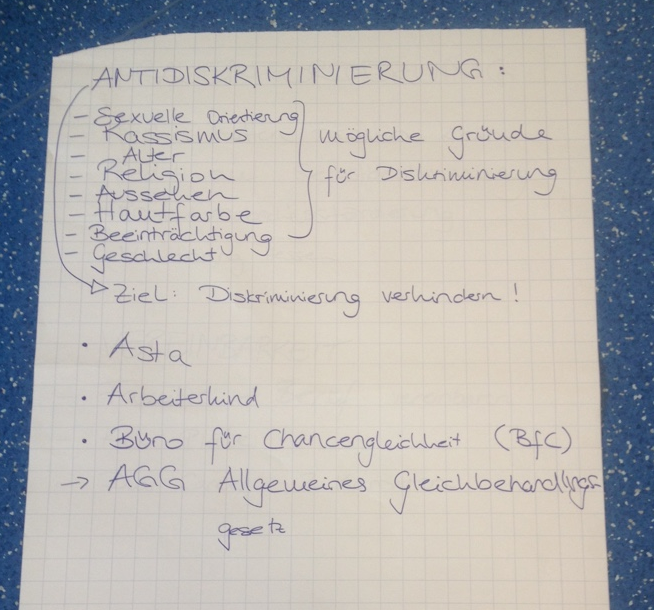 ANTIDISKRIMINIERUNG:
- Sexuelle Orientierung
- Rassismus
- Alter
- Religion
- Aussehen
- Hautfarbe
- Beeinträchtigung
- Geschlecht
mögliche Gründe
für Diskriminierung
Ziel: Diskriminierung verhindern!
• Asta
• Arbeiterkind
• Büro für Chancengleichheit (BfC)
→ AGG Allgemeines Gleichbehandlungs-
gesetz